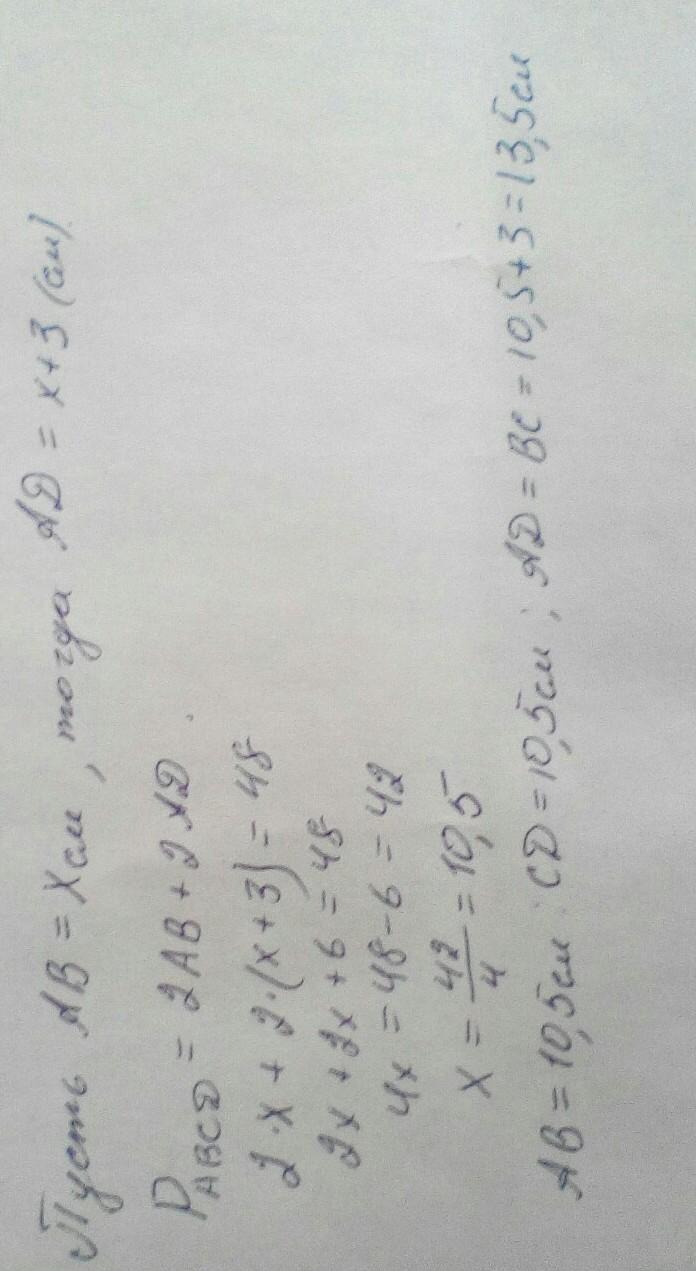 Пусть AB = x см, тогда AD = x+3 (см).
P ABCD = 2AB + 2AD.
2·x + 2·(x+3) = 48
2x + 2x + 6 = 48
4x = 48-6 = 42
x = 42/4 = 10,5
AB = 10,5см; CD = 10,5см; AD = BC = 10,5+3 = 13,5см